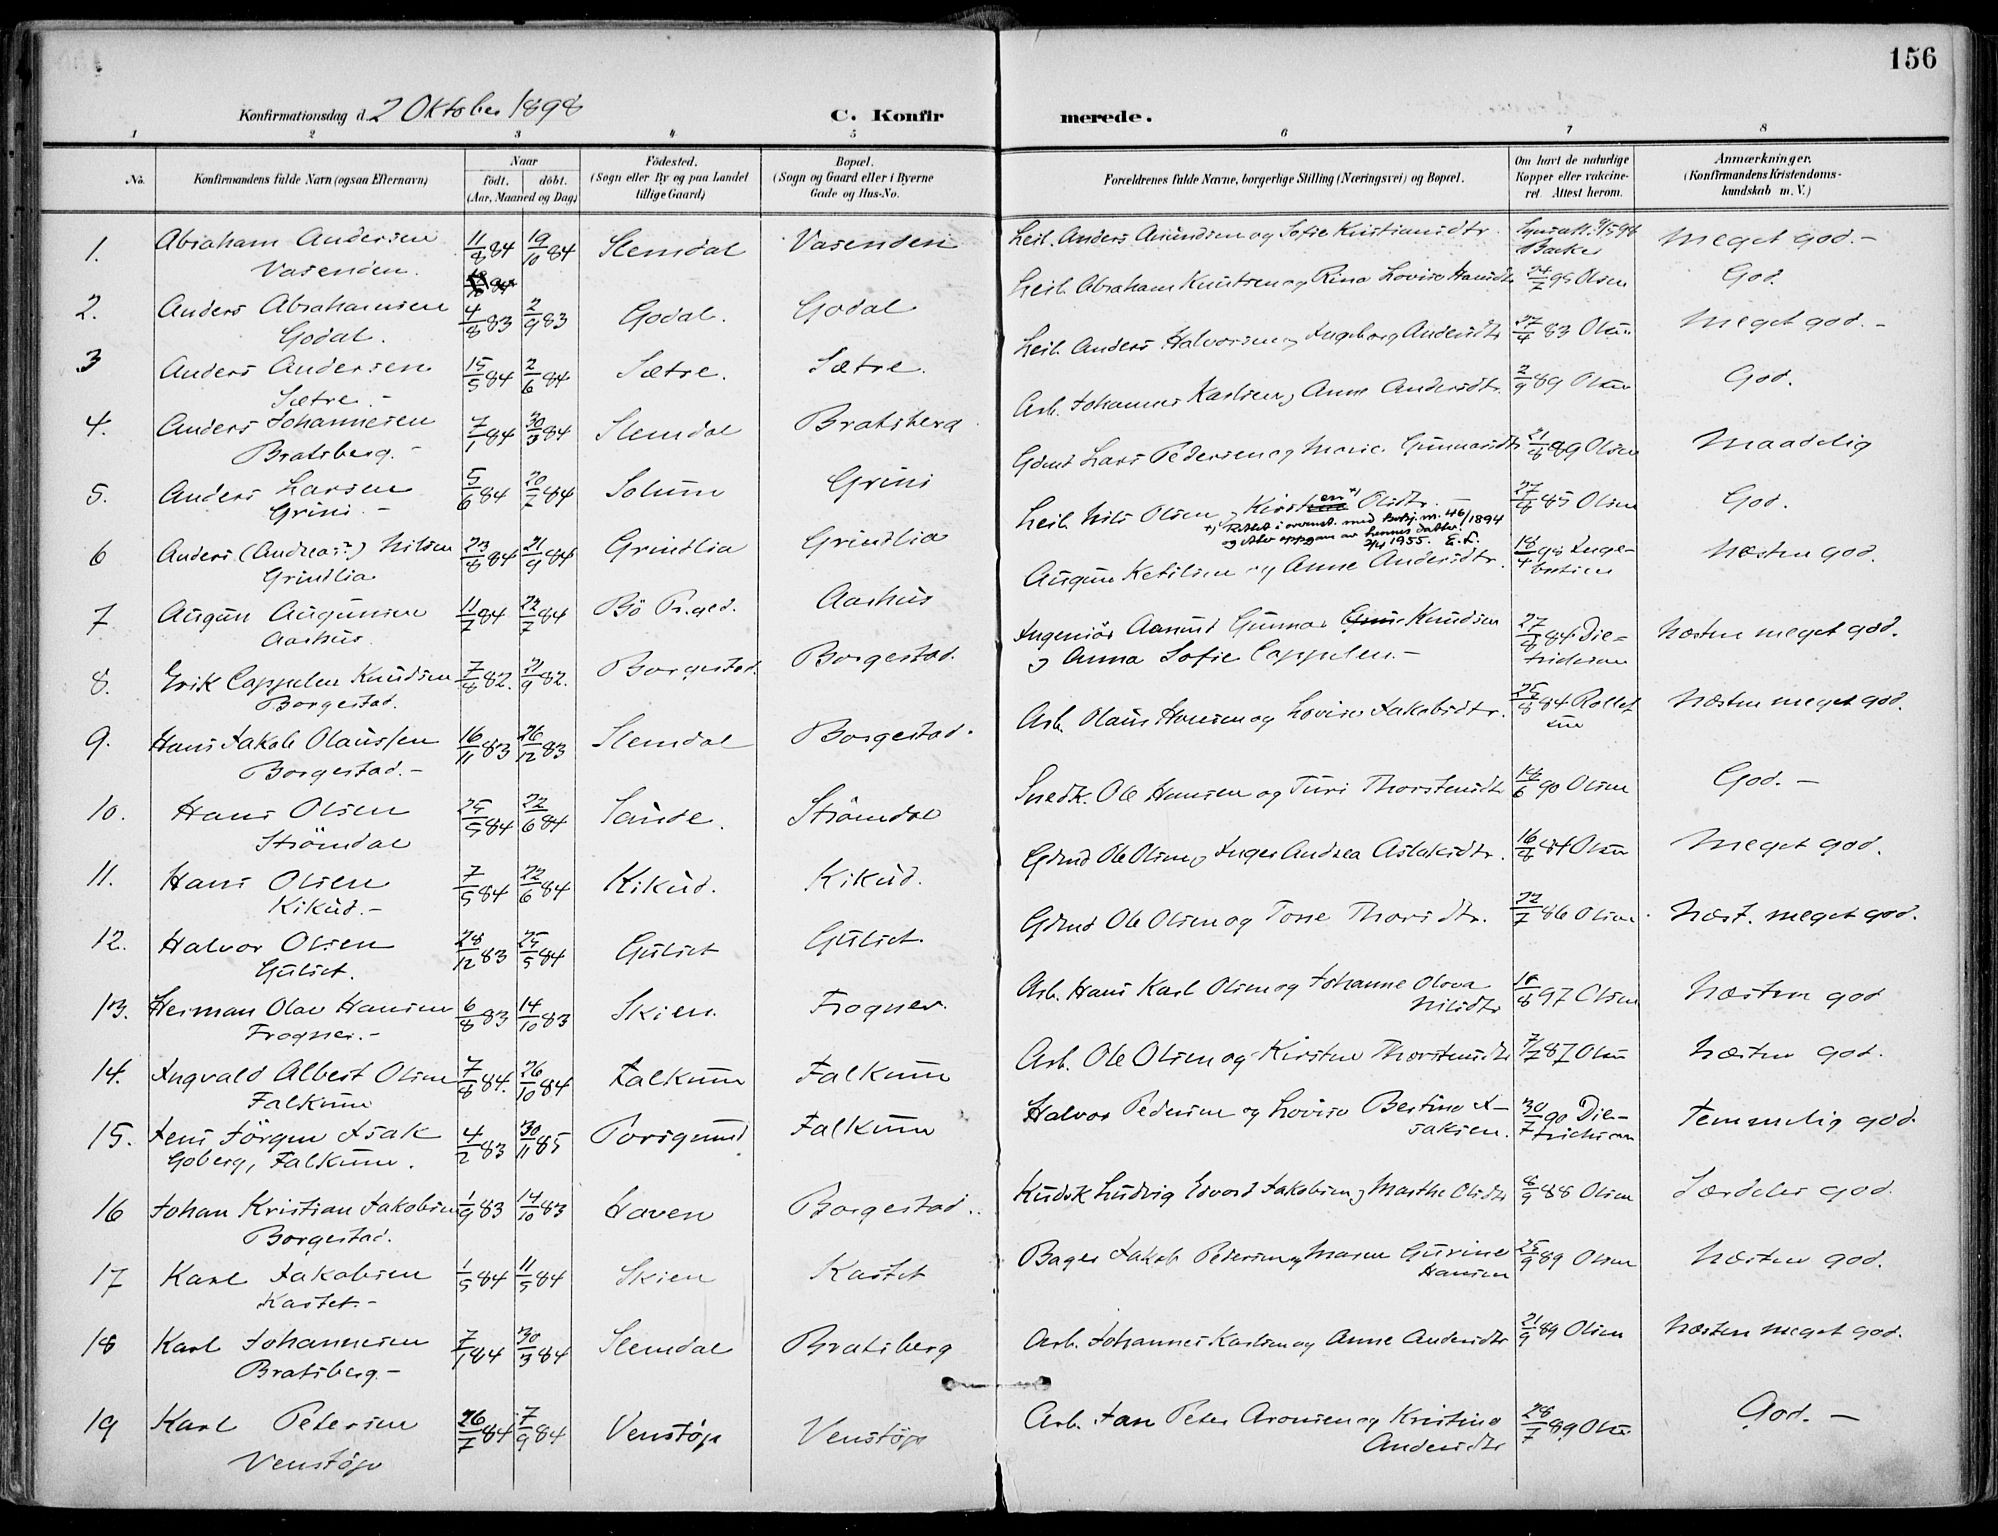 156
Konfirmationsdag d. 2 Oktober 1898
C. Konfirmerede.
1 2 3 4 5 6 7 8
No. Konfirmandens fulde Navn (ogsaa Efternavn) Naar født. døbt. (Aar, Maaned og Dag) Fødested. (Sogn eller By og paa Landet tillige Gaard) Bopæl. (Sogn og Gaard eller i Byerne Gade og Hus-No. Forældrenes fulde Navne, borgerlige Stilling (Næringsvei) og Bopæl. Om havt de naturlige Kopper eller vaccineret. Attest herom. Anmærkninger. (Konfirmandens Kristendomskundskab m. V.)
1. Abraham Andersen 11/8 84 19/10 84 Slemdal Vasenden Leil. Anders Amundsen og Sofie Kristiansdtr. Backer Meget god.-
Vasenden.
2. Anders Abrahamsen 4/8 83 2/9 83 Godal. Godal Leil. Abraham Knutsen og Rina Lovise Hansdtr 24/7 95 Olsen God.
Godal.
3 Anders Andersen 15/5 84 2/6 84 Sætre. Sætre. Leil. Anders Halvorsen og Ingeborg Andersdtr 27/4 83 Olsen Meget god.-
Sætre.-
4. Anders Johannesen 7/1 84 30/3 84 Slemdal Bratsberg Arb. Johannes Karlsen og Anne Andersdtr. 2/9 89 Olsen God.
Bratsberg.-
5. Anders Larsen 5/6 84 20/7 84 Solum Grini Gdmd Lars Pedersen og Maria Gunnarsdtr 21/8 89 Olsen Maadelig
Grini.-
6 Anders (Andreas?) Nilsen 23/8 84 21/9 84 Grindlia Grindlia Leil. Nils Olsen og Kirsten +) Olsdtr.- 27/8 85 Olsen God.
Grindlia
+) Rettet i overenst. med Beskj. nr. 46/1894
og etter oppgave av hennes datter.
2/4 1955. E. L.
7 Augun Augunsen 11/7 84 22/7 84 Bö Pr.gjed. Aashus Augun Ketilsen og Anne Andersdtr. 18/4 98 Ingebretsen Næsten god.
Aashus.
8. Erik Cappelen Knudsen 7/8 82. 21/9 82. Borgestad. Borgestad. Ingeniör Aanund Gunnar Knudsen 27/8 84 Diedrichsen Næsten meget god.
Borgestad. og Anna Sofie Cappelen.-
9. Hans Jakob Olaussen 16/11 83 26/12 83 Slemdal Borgestad. Arb. Olaus Hansen og Lovise Jakobsdtr. 25/8 84 Næsten meget god.
Borgestad.-
10. Hans Olsen 25/5 84 22/6 84 Sande. Strömdal Snedk. Ole Hansen og Turi Thorstensdtr 14/6 90 Olsen God.-
Strömdal
11. Hans Olsen 7/5 84 22/6 84 Kikud. Kikud. Gdmd Ole Olsen og Inger Andrea Aslaksdtr. 16/8 84 Olsen Meget god.
Kikud.-
12. Halvor Olsen 28/12 83 25/5 84 Gulset Gulset. Gdmd Ole Olsen og Tone Thorsdtr. 22/7 86 Olsen Næst. meget god.
Gulset.
13. Herman Olav Hansen 6/8 83 14/10 83 Skien. Frogner. Arb. Hans Karl Olsen og Johanne Olova Nilsdtr 18/8 97 Olsen Næsten god
Frogner.-
14. Ingvald Albert Olsen 7/8 84. 26/10 84 Falkum Falkum Arb. Ole Olsen og Kirsten Thorstensdtr 7/7 87 Olsen Næsten god.
Falkum
15. Jens Jörgen Isak 4/2 83 30/11 85 Porsgrund Falkum Halvor Pedersen og Lovise Bertine Isaksen. 30/7 90 Diedrichsen Temmelig god.
Goberg, Falkum.
16 Johan Kristian Jakobsen 1/9 83 14/10 83 Haven Borgestad.. Kudsk Ludvig Edvard Jakobsen og Marthe Olsdtr 8/9 88 Olsen Særdeles god.
Borgestad.
17 Karl Jakobsen 1/5 84 11/5 84 Skien Kastet Bager Jakob Pedersen og Maren Gurine Hansen 25/9 89 Olsen Næsten god.
Kastet.-
18 Karl Johannesen 7/1 84 30/3 84 Slemdal Bratsberg Arb. Johannes Karlsen og Anne Andersdtr 21/9 89 Olsen Næsten meget god.
Bratsberg.-
19 Karl Petersen 26/7 84 7/9 84 Venstöp Venstöp Arb. Jan Peter Aronsen og Kristine Andersdtr 28/7 89 Olsen God.-
Venstöp